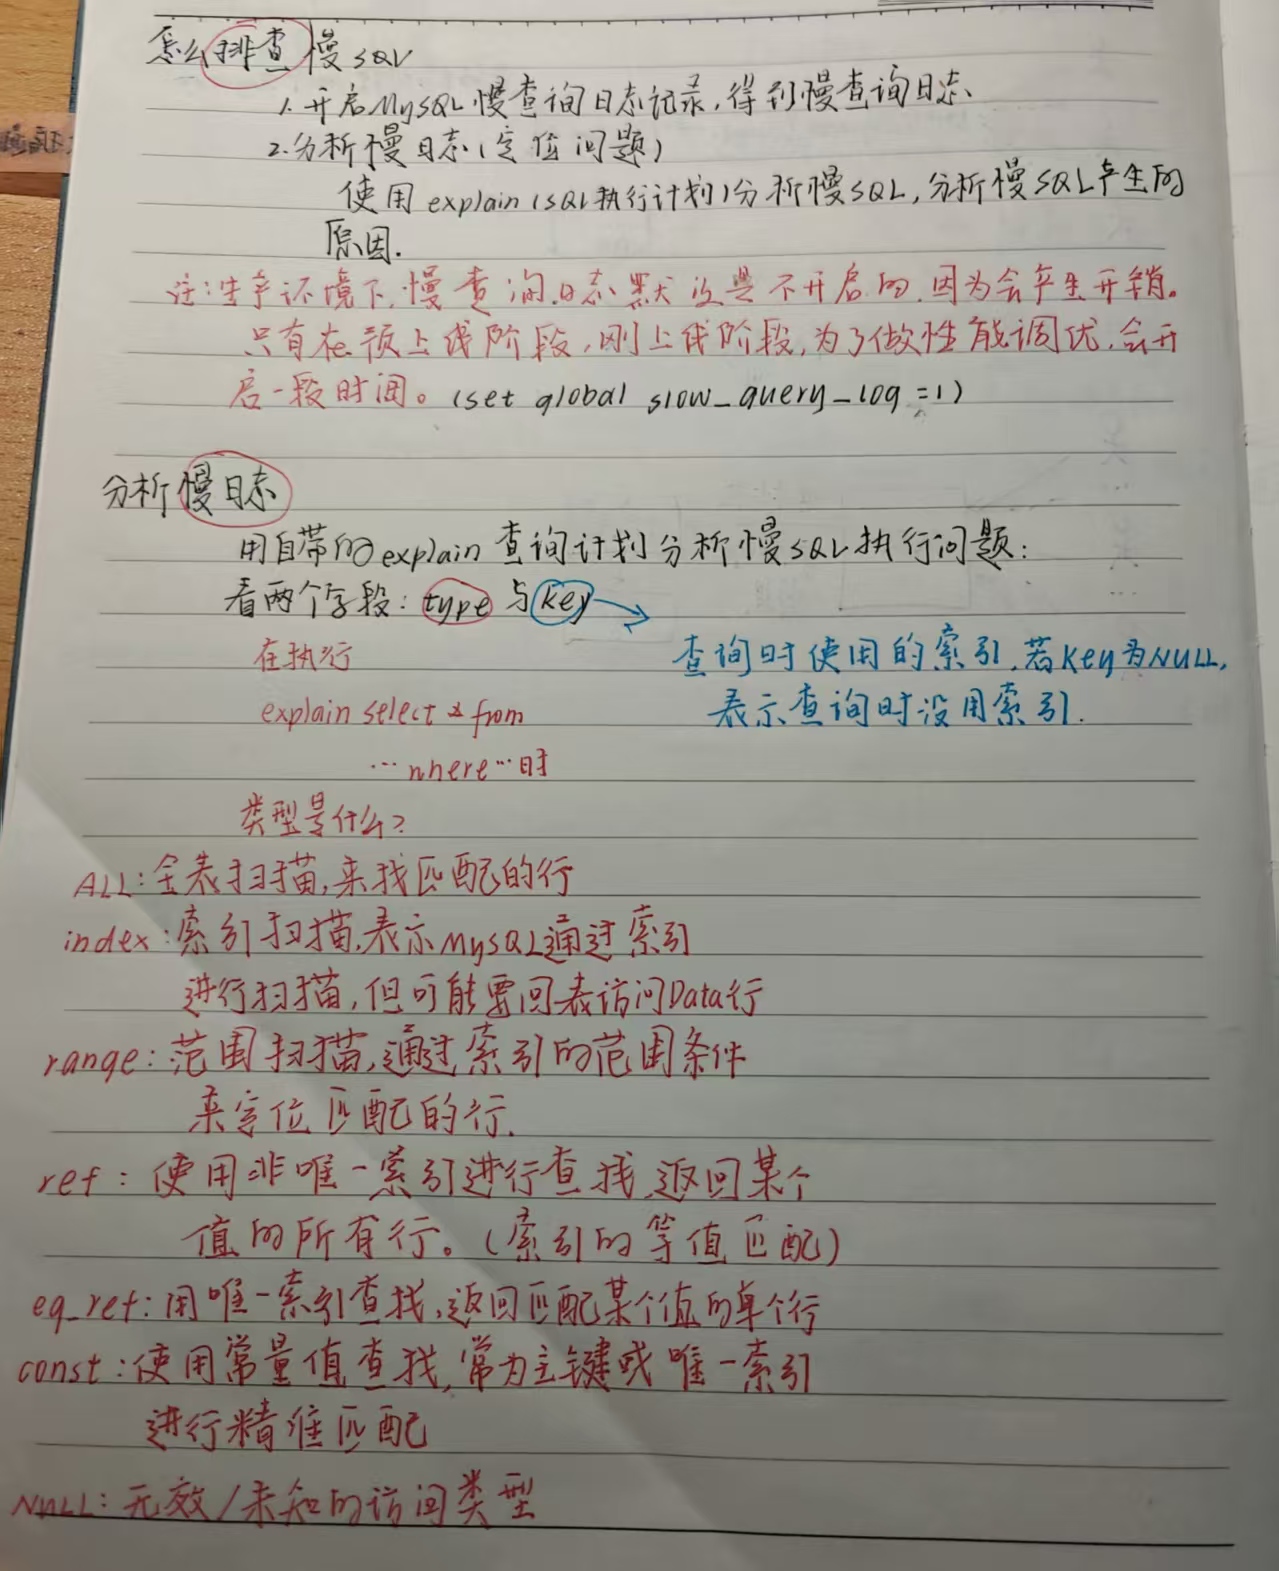 怎么排查慢SQL
1.开启MySQL慢查询日志记录,得到慢查询日志
2.分析慢日志(定位问题)
使用explain(SQL执行计划)分析慢SQL,分析慢SQL产生的
原因.
注:生产环境下,慢查询日志默认是不开启的,因为会产生开销。
只有在预上线阶段,刚上线阶段,为了做性能调优,会开
启一段时间。(set global slow_query_log=1)
分析慢日志
用自带的explain查询计划分析慢SQL执行问题:
看两个字段:type与key
查询时使用的索引,若key为NULL,
表示查询时没用索引.
在执行
explain select * from
…where…时
类型是什么?
ALL:全表扫描,来找匹配的行
index:索引扫描,表示MySQL通过索引
进行扫描,但可能要回表访问Data行
range:范围扫描,通过索引的范围条件
来定位匹配的行.
ref:使用非唯一索引进行查找,返回某个
值的所有行。(索引的等值匹配)
eq_ref:用唯一索引查找,返回匹配某个值的单个行
const:使用常量值查找,常为主键或唯一索引
进行精准匹配
NULL:无效/未知的访问类型